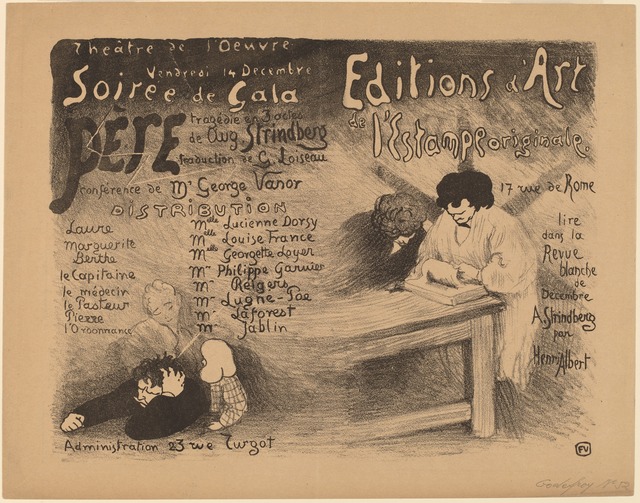 Théâtre de l'Oeuvre
Vendredi 14 Decembre
Soirée de Gala
PÈRE
tragédie en 3 actes
de Aug Strindberg
traduction de G. Loiseau
conférence de Mr George Vanor
DISTRIBUTION
Laure Melle Lucienne Dorsy
Marguerite Melle Louise France
Berthe Melle Georgette Loyer
le Capitaine Mr Philippe Garnier
le médecin Mr Reigers
le Pasteur Mr Lugne-Poe
Pierre Mr Laforest
l'Ordonnance Mr Jablin
Administration 23 rue Turgot
Editions d'Art
de l'Estampe originale.
17 rue de Rome
lire
dans la
Revue
blanche
de
Decembre
A. Strindberg
par
Henri Albert
FV